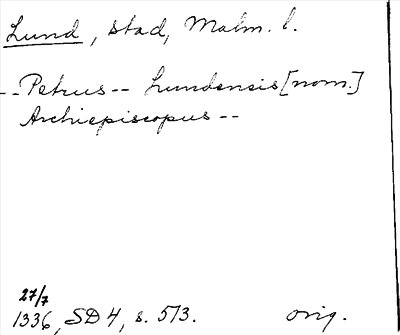 Lund, stad, Malm. l.
-- Petrus -- Lundensis [nom.]
Archiepiscopus --
27/7
1336, SD 4, s. 513. orig.